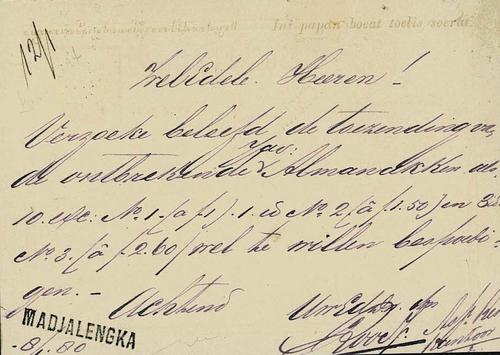 Ini papan boeat toelis soerat.
12/1
WelEdele Heeren!
Verzoeke beleefd de toezending van
de ontbrekende Jav: Almanakken als:
10 ex: No. 1. (a f 1) 1. id No. 2 (à f 1.50) en
No. 3. (à f 2.60) wel te willen bespoedi-
gen. - Achtend
UwEdg. dr.
MADJALENGKA
8/1 80